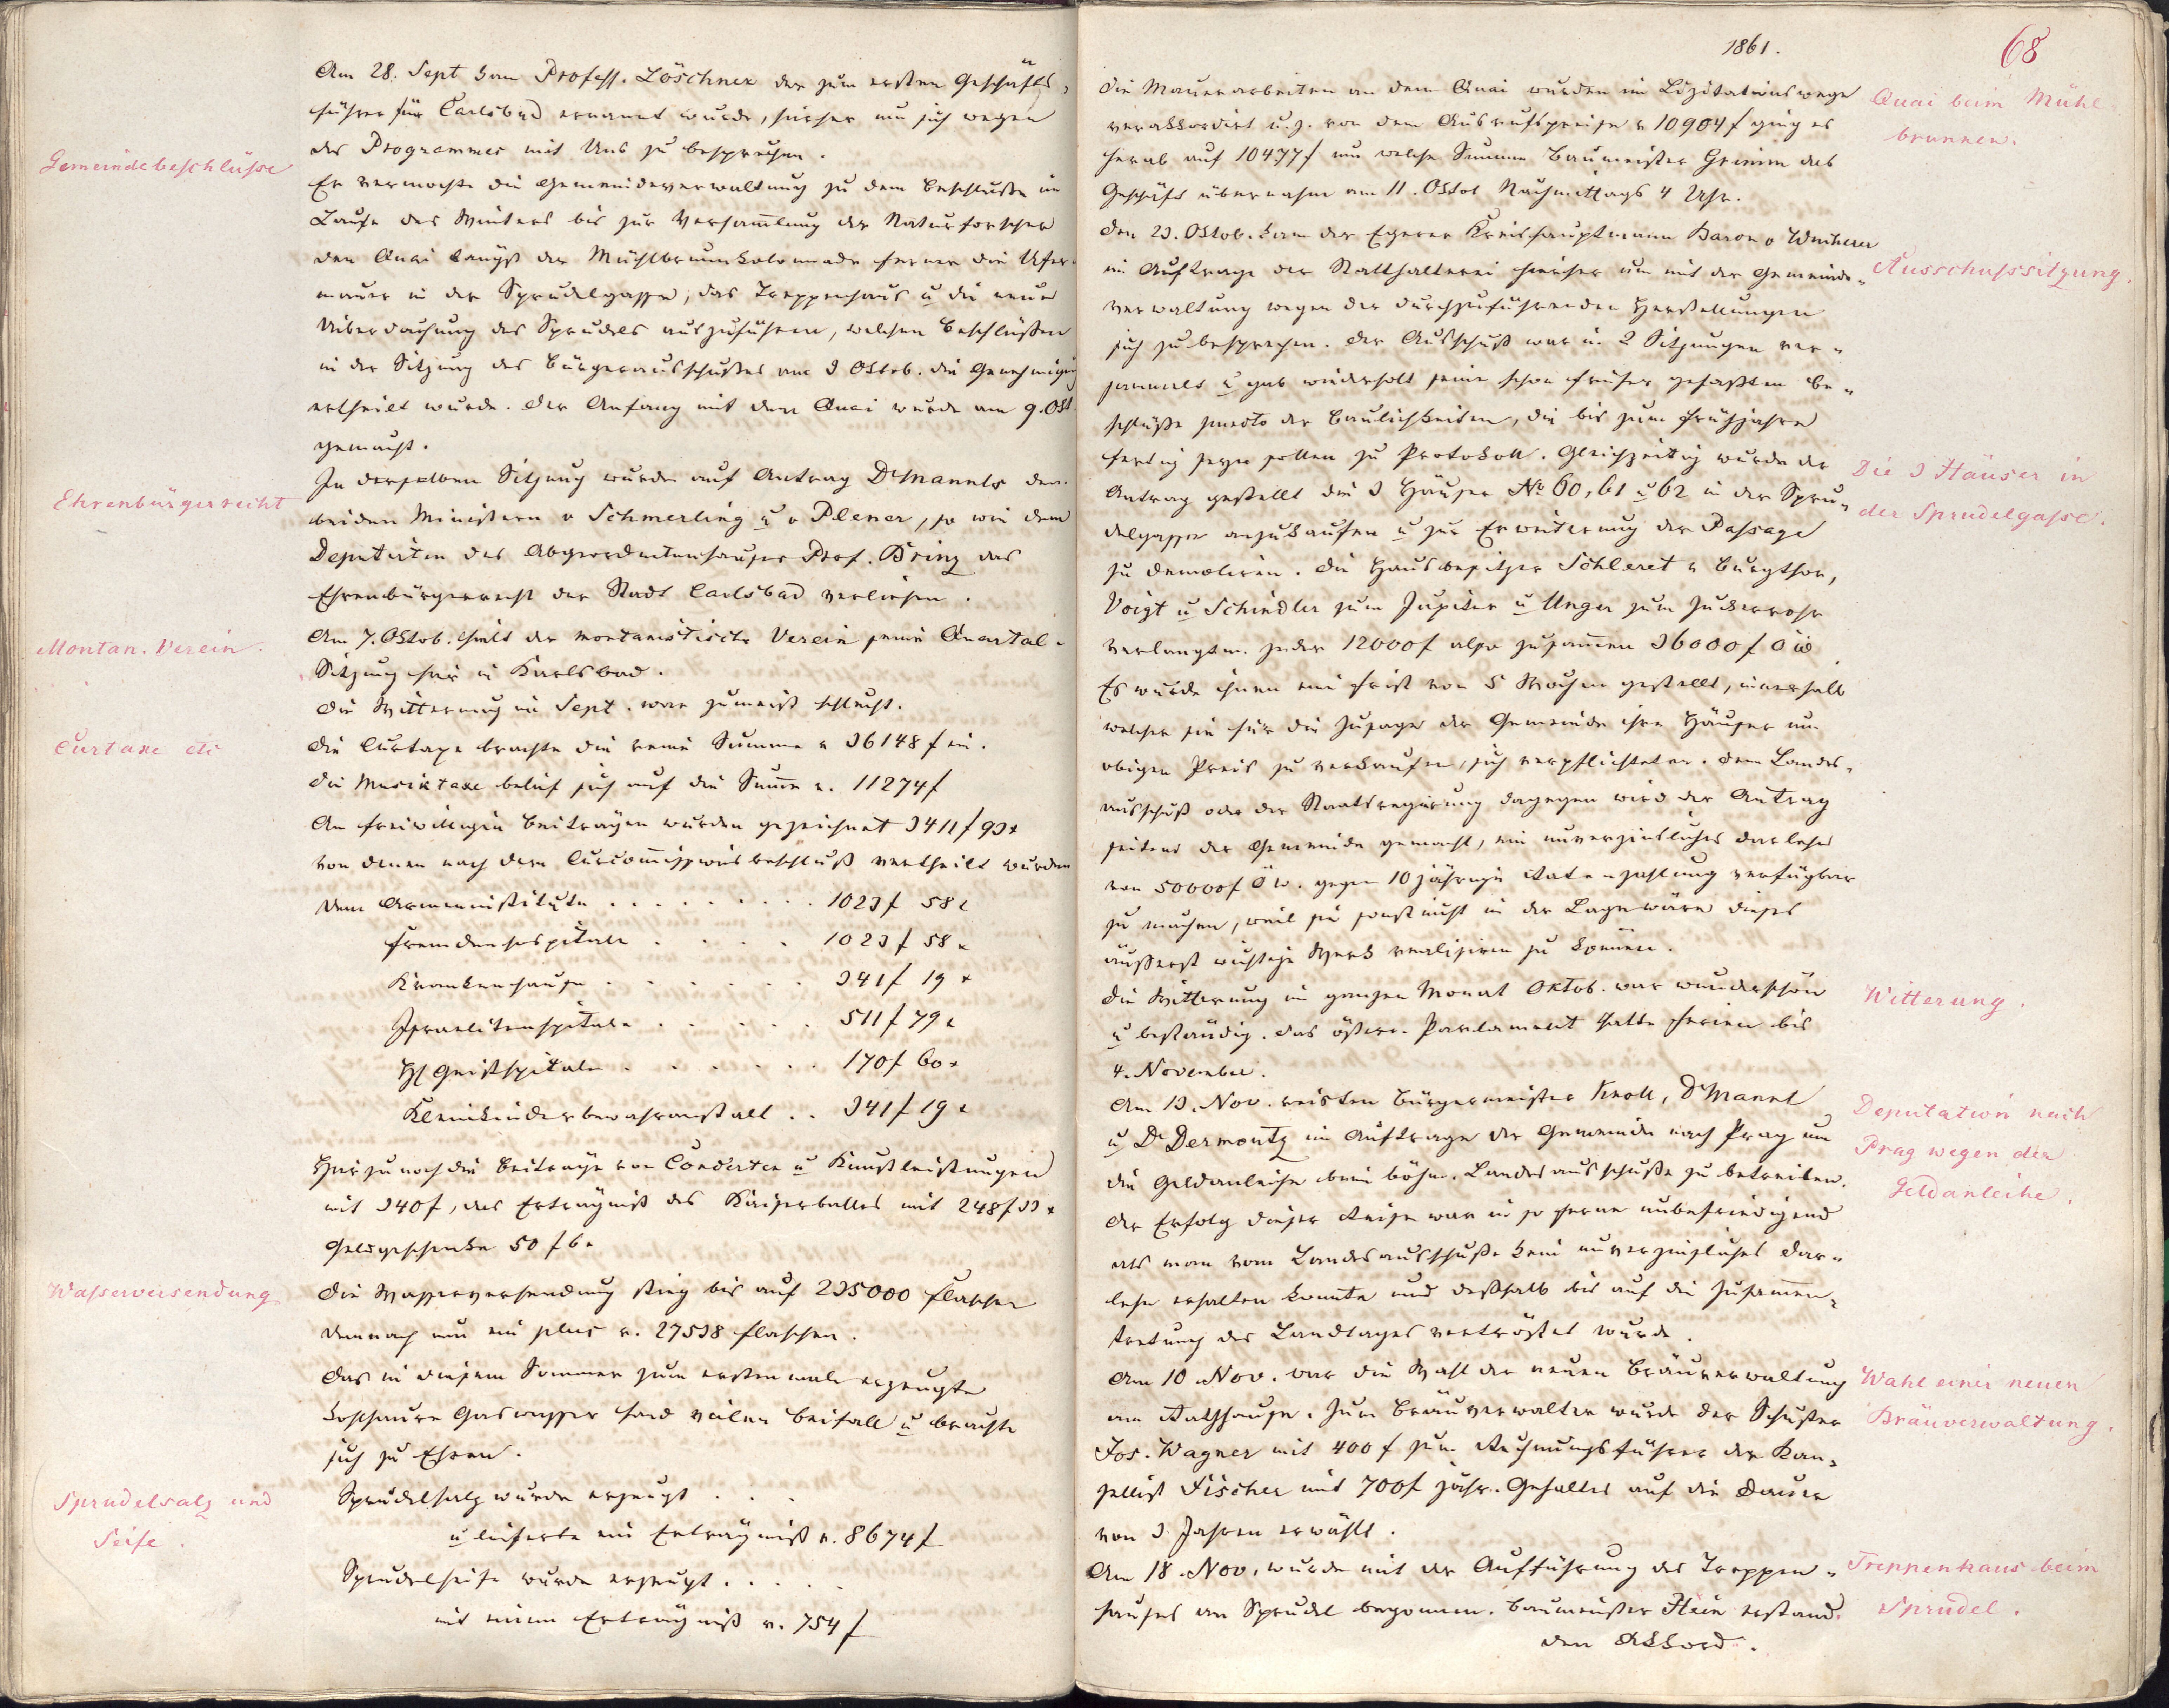 Am 28. Sept kam Profess. Löschner der zum ersten Geschäfts-
führer für Carlsbad ernannt wurde, hierher um sich wegen
des Programmes mit Uns zu besprechen.
Gemeindebeschlüsse
Er vermochte die Gemeindeverwaltung zu dem Beschlusse im
Laufe des Winters bis zur Versam̄lung der Naturforscher
den Quai längst der Mühlbrunnkolonnade ferner die Ufer-
mauer in der Sprudelgasse, das Treppenhaus u die neue
Überdachung des Sprudels auszuführen, welchen Beschlüssen
in der Sitzung des Bürgerausschußes am 3 Oktob. die Genehmigung
ertheilt wurde. Der Anfang mit dem Quai wurde am 9. Okt.
gemacht.
Ehrenbürgerrecht
In derselben Sitzung wurde auf Antrag Dr Mannls den
beiden Ministern v Schmerling u v Plener, so wie dem
Deputirten des Abgeordnetenhauses Prof. Brinz das
Ehrenbürgerrecht der Stadt Carlsbad verliehen.
Montan. Verein.
Am 7. Oktob. hielt der montanistische Verein seine Quartal-
Sitzung hier in Karlsbad.
Die Witterung im Sept. war zumeist schlecht.
Curtaxe etc
Die Curtaxe brachte die reine Summe v 36148 f ein.
Die Musiktaxe belief sich auf die Sum̄e v. 11274 f
An freiwilligen Beiträgen wurden gezeichnet 3411 f 93 x
von denen nach dem Curcom̄issionsbeschluß vertheilt wurden
dem Armeninstitute . . . . . . . . . 1023 f 58 x
Fremdenhospitale . . . . . 1023 f 58 x
Krankenhause . . . . . . 341 f 19 x
Israelitenspitale . . . . . 511 f 79 x
Hl Geistspitale . . . . . . 170 f 60 x
Kleinkinderbewahranstalt . . 341 f 19 x
Hiezu noch die Beiträge von Concerten u Kunstleistungen
mit 340 f, das Erträgniß des Kaiserballes mit 248 f 33 x
Geldgeschenke 50 f 6 x
Wasserversendung
Die Wasserversendung stieg bis auf 235000 Flaschen
demnach um ein plus v. 27538 Flaschen.
Das in diesem Sommer zum erstenmale erzeugte
kohlsaure Gaswasser fand vielen Beifall u brachte
sich zu Ehren.
Sprudelsalz und
Seife.
Sprudelsalz wurde erzeugt . . .
u lieferte ein Erträgniß v. 8674 f
Sprudelseife wurde erzeugt . . . . .
mit einem Erträgniß v. 754 f
1861.
68
Quai beim Mühl-
brunnen.
Die Mauerarbeiten an dem Quai wurden im Lizitationswege
verakkordirt u. z. von dem Ausrufspreise v 10904 f ging es
herab auf 10477 f um welche Summe Baumeister Grimm das
Geschäft übernahm am 11. Oktob Nachmittags 4 Uhr.
Ausschusssitzung.
Den 23. Oktob. kam der Egerer Kreishauptmann Baron v
im Auftrage der Statthalterei hieher um mit der Gemeinde-
verwaltung wegen der durchzuführenden Herstellungen
sich zu besprechen. Der Ausschuß war in 2 Sitzungen ver-
sammelt u gab wiederholt seine schon früher gefaßten Be-
schlüße puncto der Baulichkeiten, die bis zum Frühjahre
fertig seyn sollen zu Protokoll. Gleichzeitig wurde der
Die 3 Häuser in
der Sprudelgasse.
Antrag gestellt die 3 Häuser No 60, 61 u 62 in der Spru-
delgasse anzukaufen u zur Erweiterung der Passage
zu demoliren. Die Hausbesitzer Schleret v Burgthor,
Voigt u Schindler zum Jupiter u Unger zum Zuckerrohr
verlangten jeder 12000 f also zusam̄en 36000 f Ö W.
Es wurde ihnen eine Frist von 5 Wochen gestellt, innerhalb
welcher sie für die Zusage der Gemeinde ihre Häuser um
obigen Preis zu verkaufen, sich verpflichteten. Dem Landes-
ausschuß oder der Staatsregierung dagegen wird der Antrag
seitens der Gemeinde gemacht, ein unverzinsliches Darlehen
von 50000 f Ö W. gegen 10 jährige Ratenzahlung verfügbar
zu machen, weil sie sonst nicht in der Lage wäre dieses
äußerst wichtige Werk realisiren zu können.
Witterung.
Die Witterung im ganzen Monat Oktob. war wunderschön
u beständig. Das österr. Parlament hatte Ferien bis
4. November.
Deputation nach
Prag wegen der
Geldanleihe.
Am 13. Nov. reisten Bürgermeister Knoll, Dr Mannl
u Dr Dermontz im Auftrage der Gemeinde nach Prag um
die Geldanleihe beim böhm. Landesausschuße zu betreiben.
Der Erfolg dieser Reise war in so ferne unbefriedigend
als man vom Landesausschuße kein unverzinsliches Dar-
lehn erhalten konnte und deßhalb bis auf die Zusam̄en-
tretung des Landtages vertröstet wurde.
Wahl einer neuen
Bräuverwaltung.
Am 10 Nov. war die Wahl der neuen Bräuverwaltung
am Rathhause. Zum Bräuverwalter wurde der Schuster
Jos. Wagner mit 400 f zum Rechnungsführer der Kan-
zellist Fischer mit 700 f jährl. Gehaltes auf die Dauer
von 3 Jahren erwählt.
Treppenhaus beim
Sprudel.
Am 18. Nov. wurde mit der Aufführung des Treppen-
hauses am Sprudel begonnen. Baumeister Hein erstand
den Akkord.